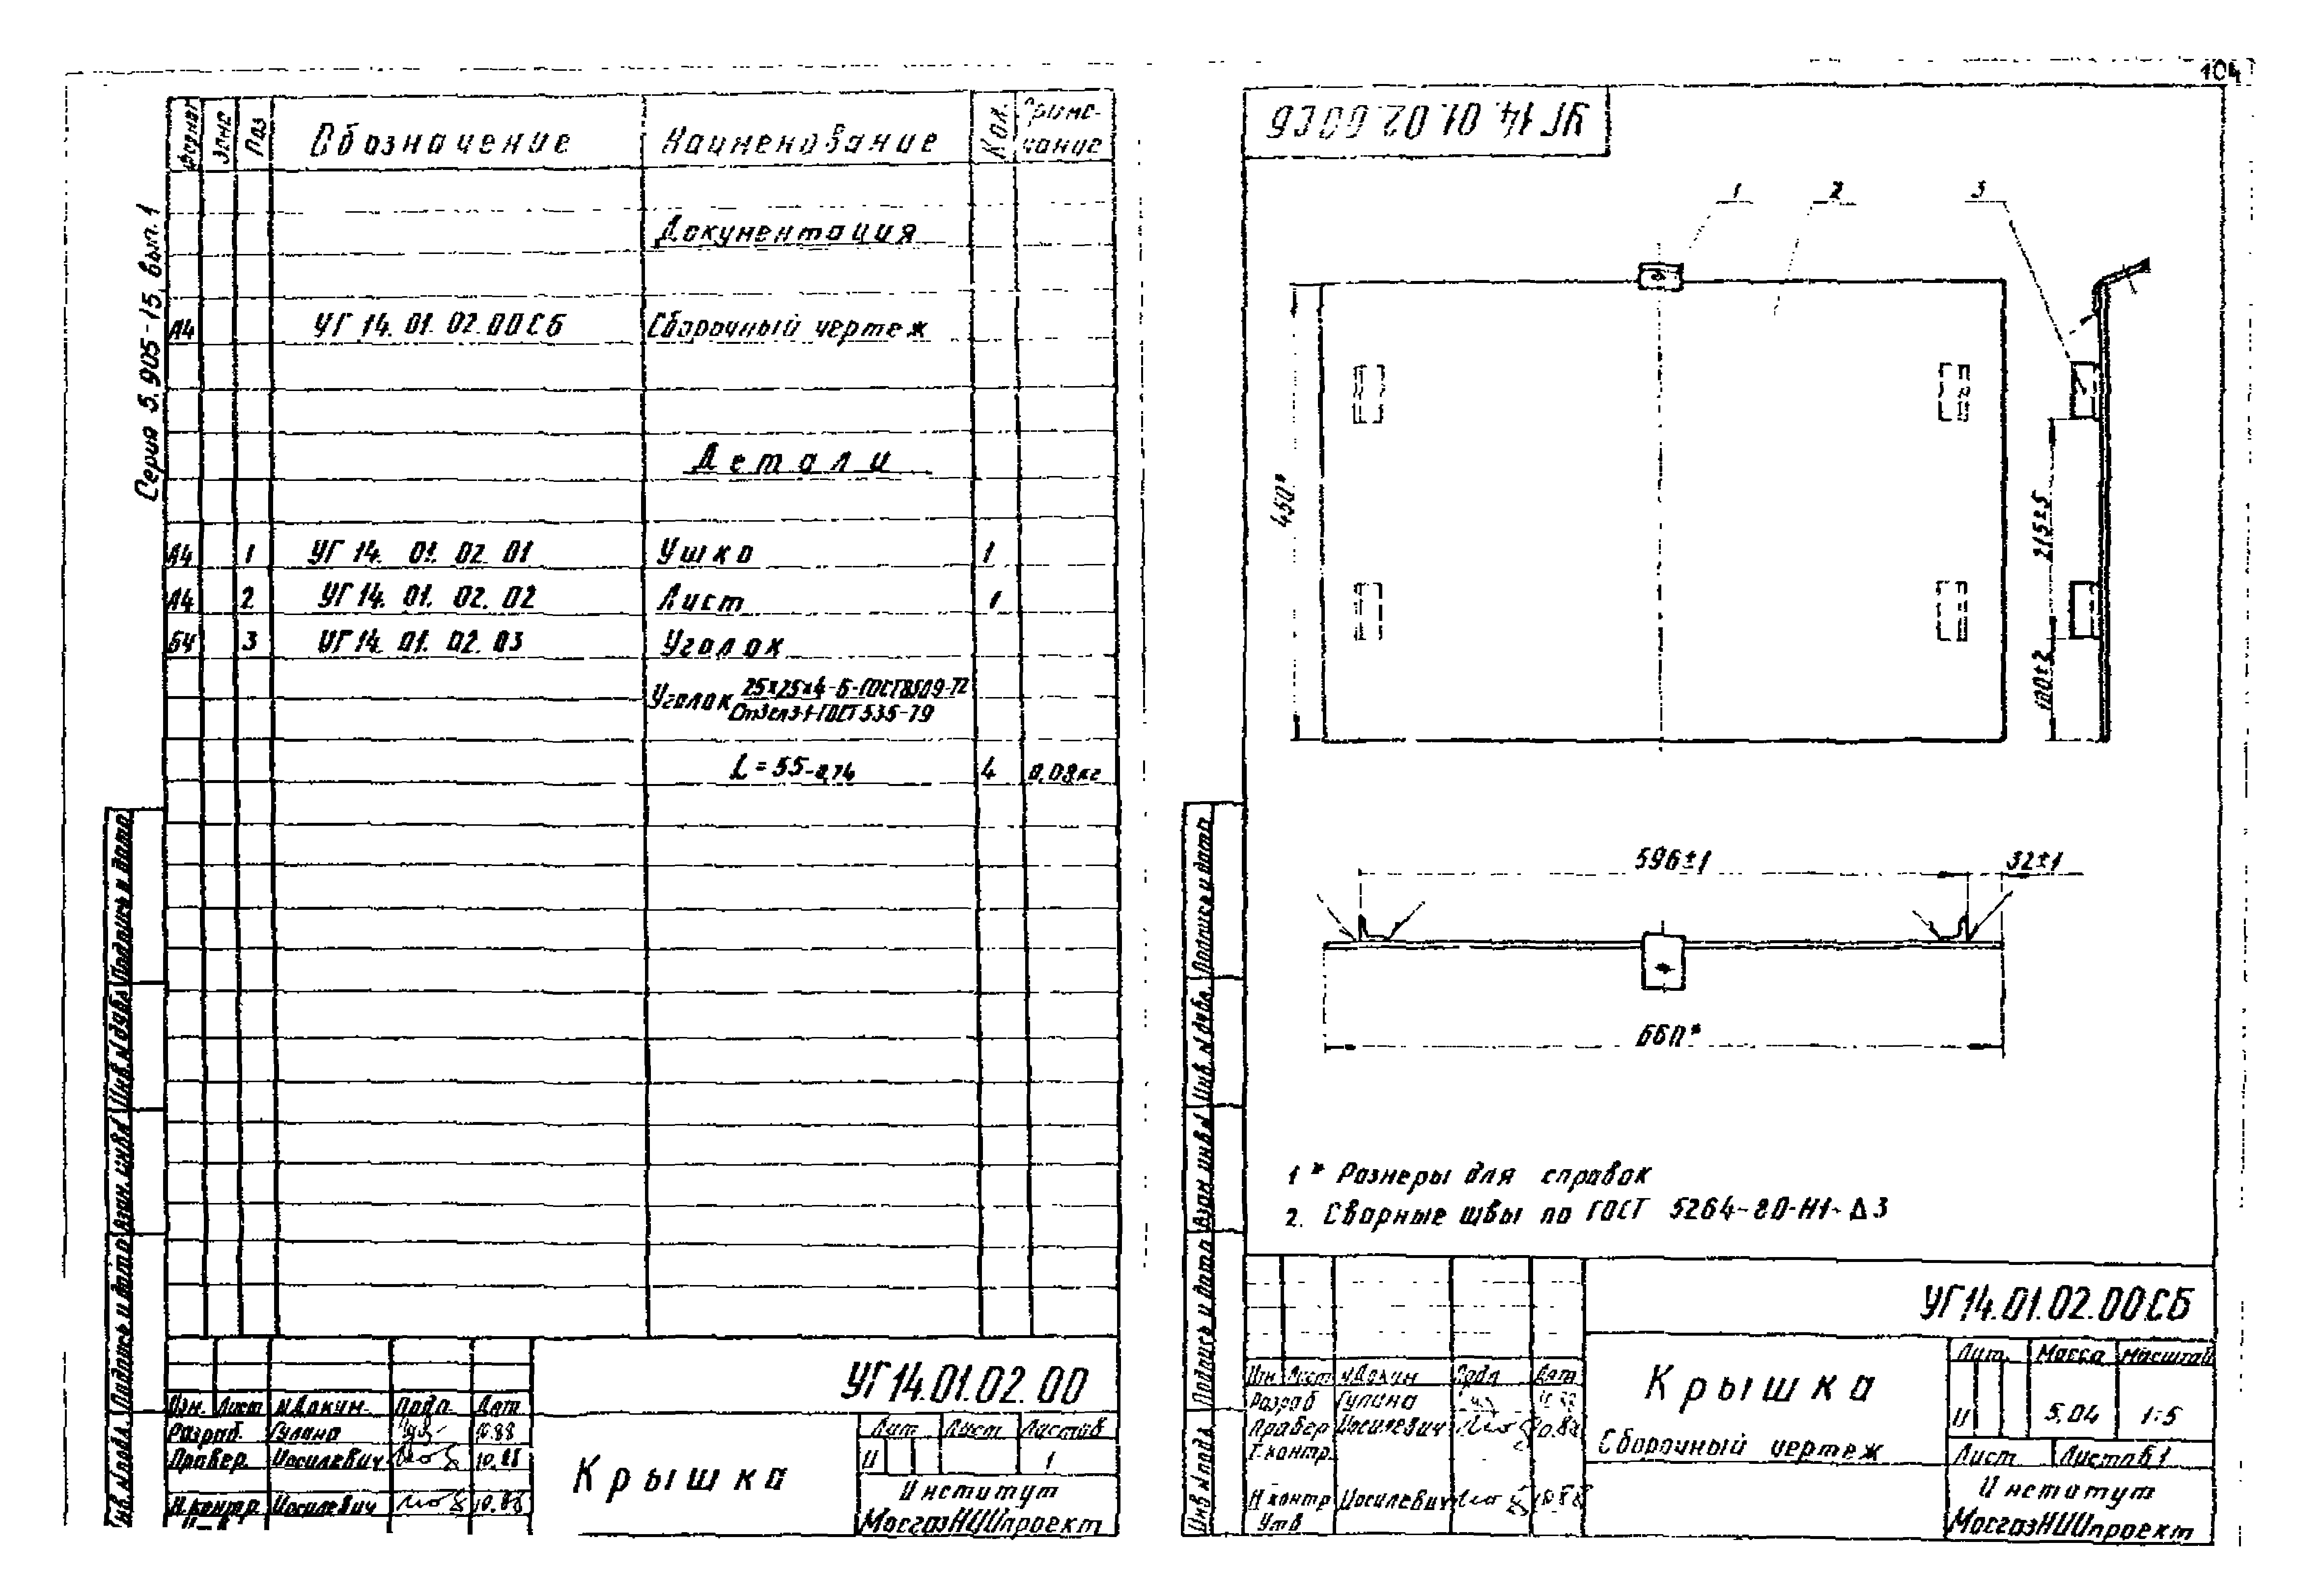 104
Серия 5.905-15 вып.1
Формат Зона Поз Обозначение Наименование Кол. Приме-чание
Документация
А4 УГ 14. 01. 02. 00 СБ Сборочный чертеж
Детали
А4 1 УГ 14. 01. 02. 01 Ушко 1
А4 2 УГ 14. 01. 02. 02 Лист 1
БЧ 3 УГ 14. 01. 02. 03 Уголок
Уголок 25×25×4-Б-ГОСТ 8509-72
Ст3сп3-I-ГОСТ 535-79
L=55-0,74 4 0,08кг
Инв.N подл. Подпись и дата Взам. инв N Инв. N дубл. Подпись и дата
УГ14.01.02.00
Изм. Лист N Докум. Подп. Дат
Разраб. Гулина 10.88
Провер. Иосилевич 10.88
Н.контр. Иосилевич 10.88
Крышка
Лит Лист Листов
И 1
Институт
МосгазНИИпроект
УГ 14. 01. 02. 00 СБ
1 2 3
450*
215±5
100±2
596±1
32±1
660*
1 * Размеры для справок
2. Сварные швы по ГОСТ 5264-80-Н1-Δ3
Инв N подл. Подпись и дата Взам. инв N Инв. N дубл. Подпись и дата
УГ14.01.02.00СБ
Изм. Лист N Докум Подп Дат
Разраб Гулина
Провер Иосилевич 10.88
Т.контр.
Н контр Иосилевич 10.88
Утв
Крышка
Сборочный чертеж
Лит. Масса Масштаб
И 5,04 1:5
Лист Листов 1
Институт
МосгазНИИпроект